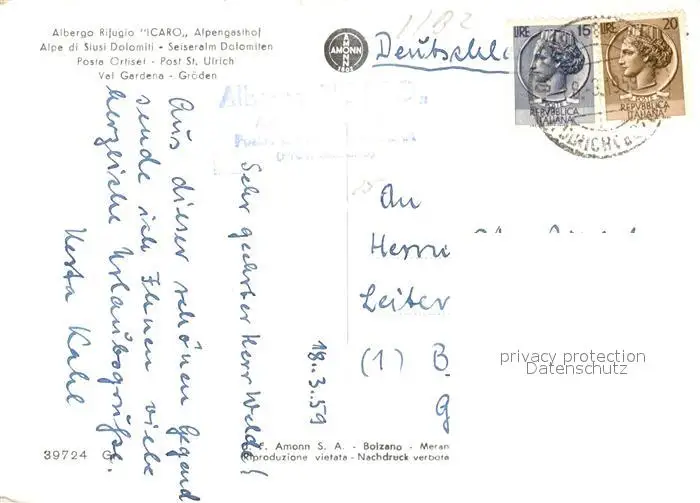 Albergo Rifugio "ICARO„ Alpengasthof
Alpe di Siusi Dolomiti - Seiseralm Dolomiten
Posta Ortisei - Post St. Ulrich
Val Gardena - Gröden
AMONN
AMONN
1802
1182
Deutschl
LIRE 15
POSTE
REPVBBLICA
ITALIANA
LIRE 20
POSTE
REPVBBLICA
ITALIANA
18..3..59
Sehr geehrter Herr Welde!
Aus dieser schönen Gegend
sende ich Ihnen viele
herzliche Urlaubsgrüße.
Herta Kahl
An
Herrn
Leiter
(1) B
g
privacy protection
Datenschutz
39724 G
F. Amonn S. A. - Bolzano - Meran
Riproduzione vietata - Nachdruck verbote